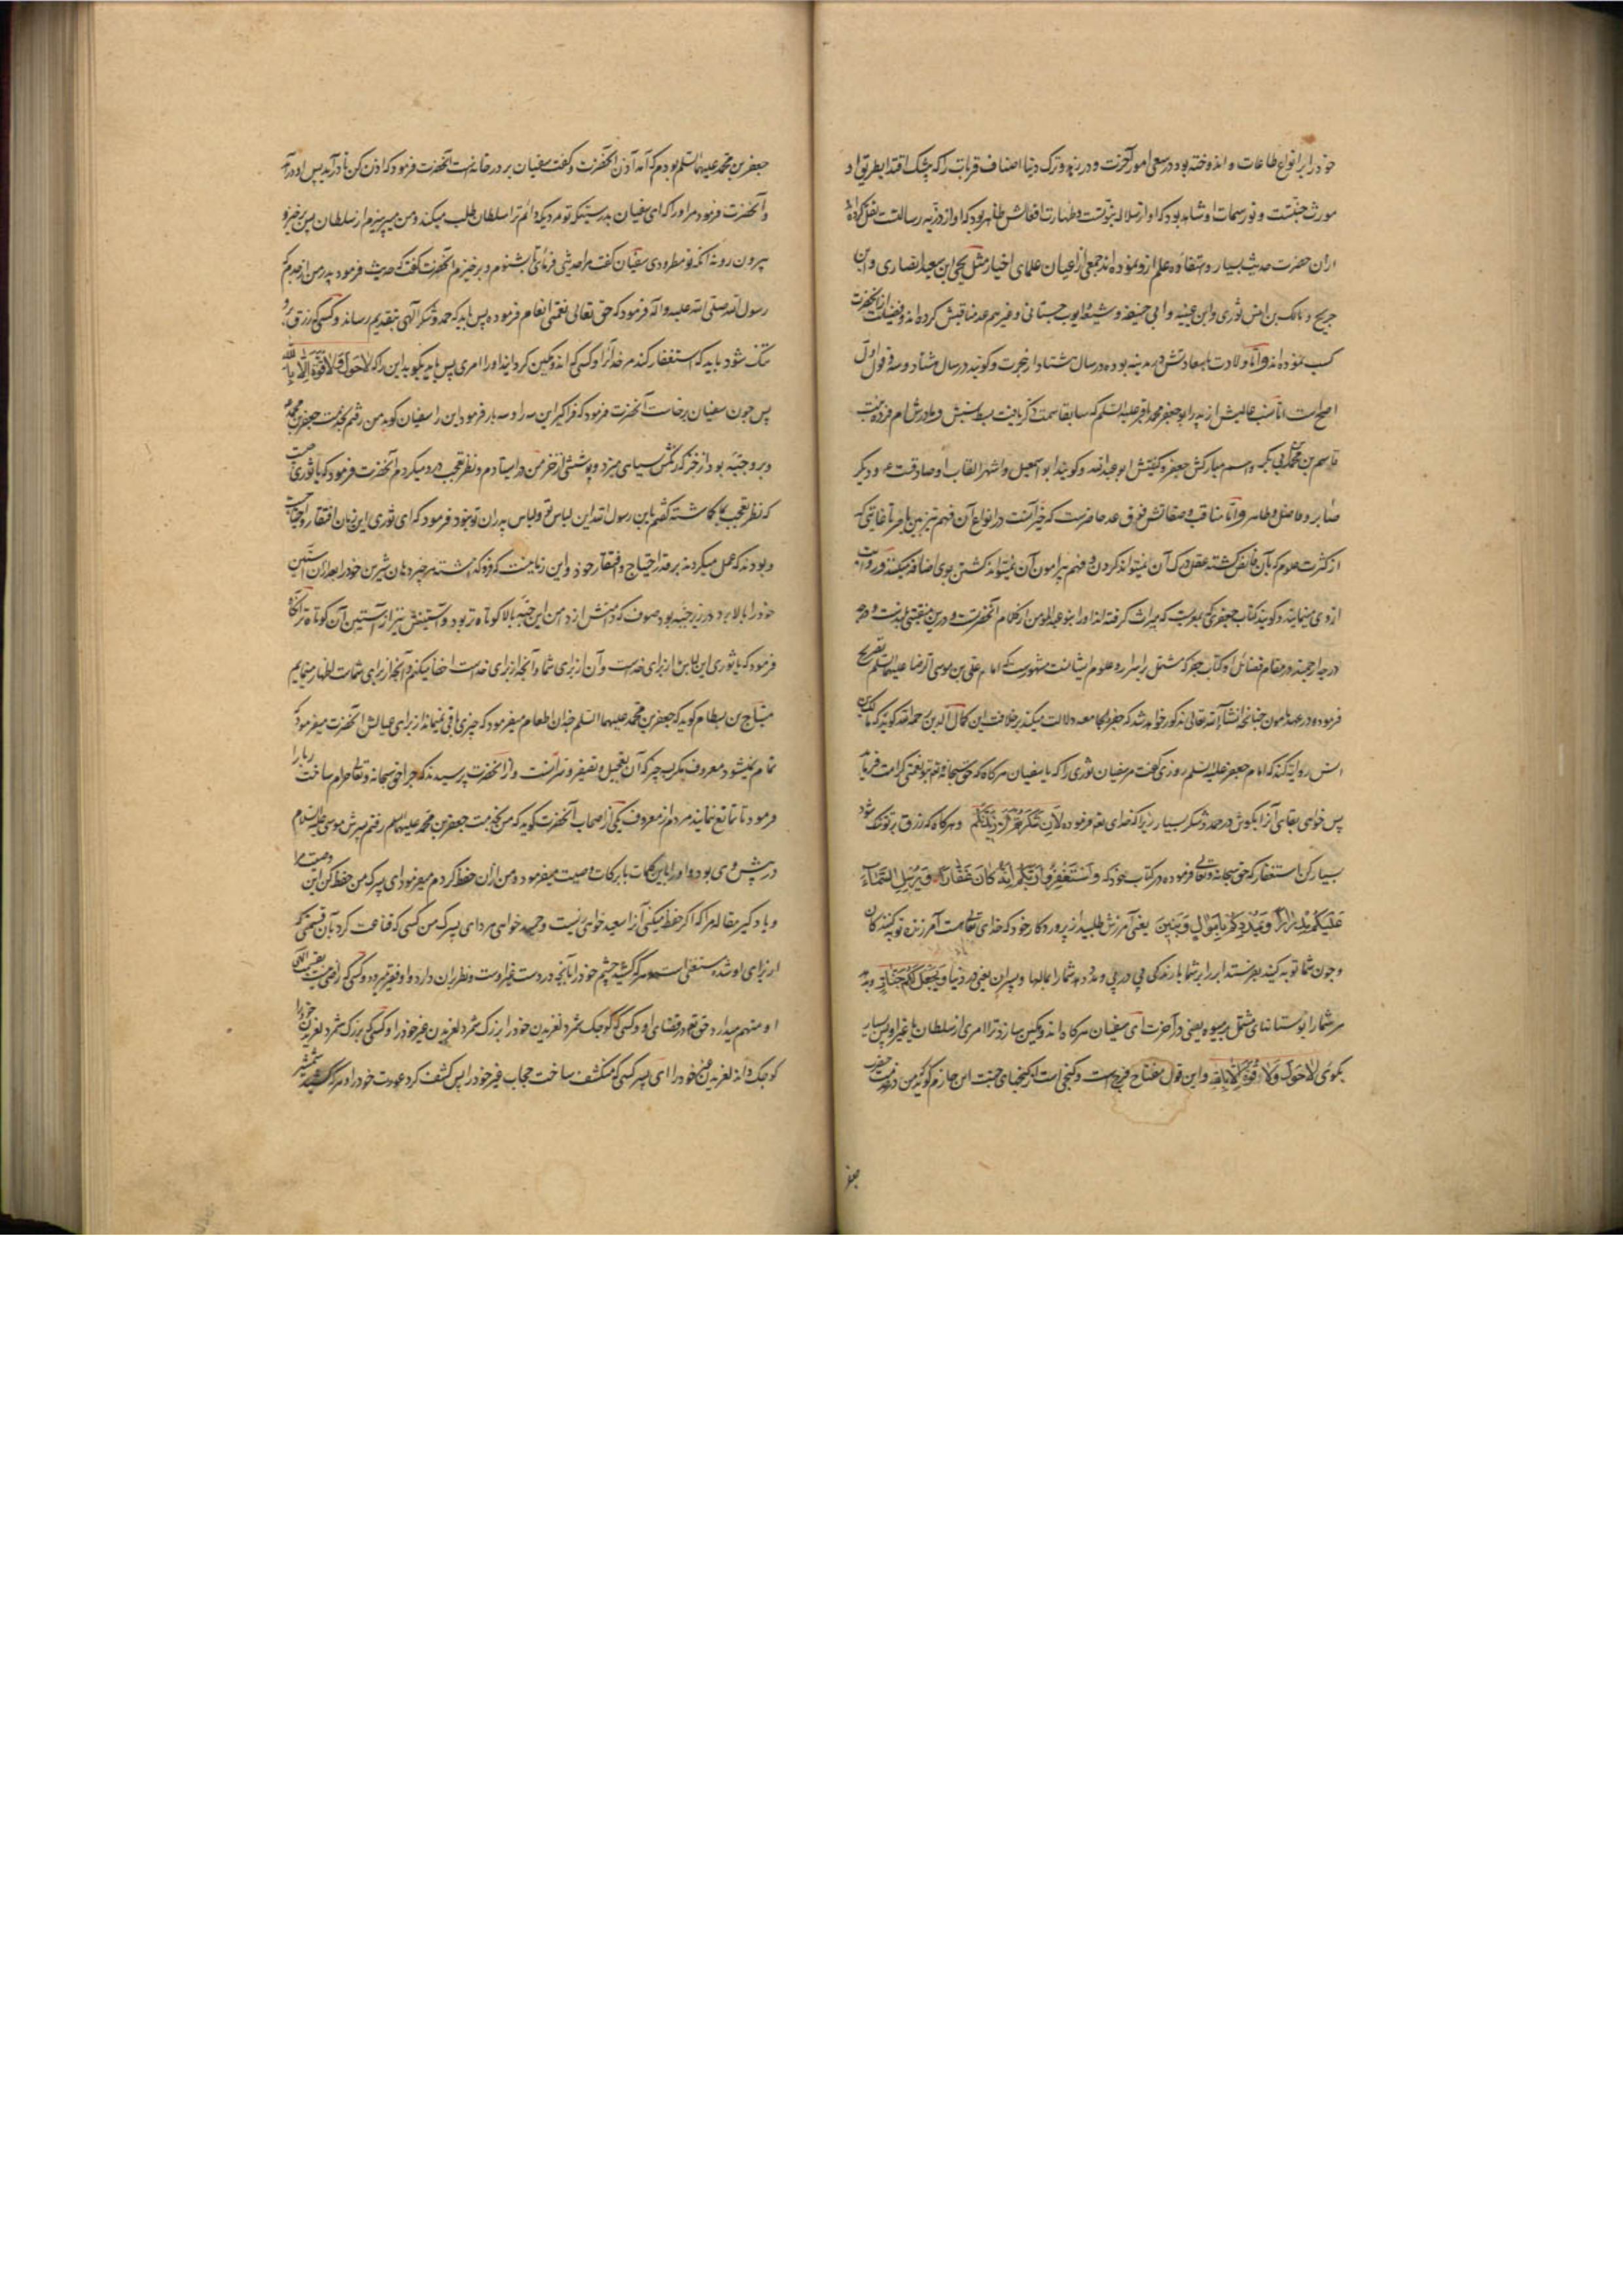 خود را بر انواع طاعات و اندوخته بود در سعی امور آخرت و در زهد و ترک دنیا اصناف قربات را که بیشک اقتدا بطریق او
مورث جنّتست و نور سمات او شاهد بود که او از سلاله نبوّتست و طهارت افعالش ظاهر بود که او از ذریّه رسالتست نقل کرده‌اند
ازان حضرت حدیث بسیار و استفاده علم ازو نموده‌اند جمعی از اعیان علمای اخیار مثل یحیی ابن سعید انصاری و ابن
جریح و مالک بن انس ثوری و ابن عیینه و ابی حنیفه و شعبه و ایوب سجستانی و غیر هم عد مناقبش کرده‌اند و فضیلت از آنحضرت
کسب نموده‌اند و امّا ولادت با سعادتش در مدینه بوده در سال هشتاد از هجرت و گویند در سال هشتاد و سه و قول اول
اصح است امّا نسب عالیش از پدر ابو جعفر محمد باقر علیه السلم که سابقا سمت ذکر یافت بسط نسبش و مادرش ام فروه بنت
قاسم بن محمد بن ابی بکر و اسم مبارکش جعفر و کنیتش ابو عبدالله و گویند ابو اسمعیل و اشهر القاب او صادقست ع و دیگر
صابر و فاضل و طاهر و امّا مناقب و صفاتش فوق عد حاضرست که حیرانست در انواع آن فهم تیزبین با هر تا غایتی که
از کثرت علوم که بآن فایض گشته عقل درک آن نمیتواند کردن و فهم پیرامون آن نمیتواند گشتن بوی اضافه میکنند و روایت
ازوی مینمایند و گویند کتاب جعفری که بمغرب که بمیراث گرفته‌اند او را بنو عبد المومن از کلام آنحضرت و درین منقبتی بلندست و درجه
درجه ارجمند در مقام فضائل او کتاب جفر که مشتمل بر اسرار و علوم ایشانست مشهورست که امام علی بن موسی الرضا علیهما السلم تصریح
فرموده در عهد مامون چنانچه انشاء الله تعالی مذکور خواهد شد که جفر و جامعه دلالت میکند بر خلافت این کمال الدین رحمه الله گوید که مالک بن
انس روایت کند که امام جعفر علیه السلم روزی گفت مر سفیان ثوری را که یا سفیان هرگاه که حق سبحانه و تع بتو نعتی کرامت فرماید
پس خواهی بقای آنرا بکوش در حمد و شکر بسیار زیرا که خدای تع فرموده لَاِن شَکَرتُم لَاَزیدَنَّکُم و هرگاه که رزق بر تو تنک شود
بسیار کن استغفار که حق سبحانه و تعالی فرموده در کتاب خود که وَ اسْتَغْفِرُوا رَبَّکُمْ اِنَّهُ کَانَ غَفَّارًا وَ یُرْسِلِ السَّمَآءَ
عَلَیْکُمْ مِدْرَارًا وَ یُمْدِدْکُمْ بِاَمْوَالٍ وَ بَنِینَ یعنی آمرزش طلبید از پروردکار خود که خدای تعالی هست آمرزنده توبه کنندکان
و چون شما توبه کنید بفرستد ابر را بر شما بارندکی پی در پی و مدد دهد شما را بمالها و پسران یعنی در دنیا وَ یَجْعَلْ لَکُمْ جَنَّاتٍ و بدهد
مر شما را بوستانهای مشتمل بر میوه یعنی در آخرت ای سفیان هرکاه اندوهکین سازد ترا امری از سلطان یا غیر او پس بسیار
بکوی لاَ حَوْلَ وَ لاَ قُوَّةَ اِلّا بِاللهِ و این قول مفتاح فرج است و گنجی است از گنجهای جنت ابن حازم گوید که من در خدمت حضرت
جعفر
جعفر بن محمد علیهما السلم بودم که آمد آذن آنحضرت و گفت سفیان بر در خانه است آنحضرت فرمود که اذن کن تا درآید پس او درآمد
و آنحضرت فرمود مر او را که ای سفیان بدرستیکه تو مردیکه دائم ترا سلطان طلب میکند و من میپرهیزم از سلطان پس برخیز و
بیرون رو نه آنکه تو مطرودی سفیان گفت مرا حدیثی فرمائی تا بشنوم و برخیزم آنحضرت گفت که حدیث فرمود پدر من از جدم که
رسول الله صلی الله علیه و اله فرمود که حق تعالی نعمتی انعام فرموده پس باید که حمد و شکر الهی بتقدیم رساند و کسی که رزق برو
تنک شود باید که استغفار کند مر خدا را و کسی که اندوهکین کرداند او را امری پس باید بکوید این را که لاَ حَوْلَ وَ لاَ قُوَّةَ اِلّا بِاللهِ
پس چون سفیان برخاست آنحضرت فرمود که فراکیر این سه را و سه بار فرمود این را سفیان گوید من رفتم بخدمت جعفر بن محمد ع
و برو جبّه بود از خز که رنکش سیاهی میزد و پوششی از خز من در ایستادم و نظر تعجب درو میکردم آنحضرت فرمود که یا ثوری چیست
که نظر تعجب بما کاشته گفتم یا بن رسول الله این لباس تو و لباس پدران تو نبود فرمود که ای ثوری این زمان افتقار و احتیاجست
و بودند که عمل میکردند بر قدر احتیاج و افتقار خود و این زمانیست که
خود را بالا برد در زیر جبّه بود صوف که دامنش از دامن این جبّه بالا کوتاه‌تر بود و آستینش نیز از آستین آن کوتاه‌تر آنکاه
فرمود که یا ثوری این لباس از برای خداست و آن از برای شما و آنچه از برای خداست اخفا میکنم و آنچه از برای شماست اظهار مینمایم
هیّاج بن بسطام گوید که جعفر بن محمد علیهما السلم چندان اطعام میفرمود که چیزی باقی نمیماند از برای عیالش آنحضرت میفرمود که
تمام نمیشود معروف مکر بسه چیز که آن تعجیل و تصغیر و ستر آنست و از آنحضرت پرسیدند که چرا حق سبحانه و تعالی حرام ساخت ربا را
فرمود تا تمانع نمایند مردم از معروف یکی از اصحاب آنحضرت گوید که من بخدمت جعفر بن محمد علیهما السلم رفتم پسرش موسی علیه السلام
در پیش وی بود و او را باین کلمات با برکات وصیت میفرمود و من ازان حفظ کردم میفرمود ای پسرک من حفظ کن این وصیت مرا
و یاد کیر مقاله مرا که اکر حفظ میکنی آنرا سعید خواهی زیست و حمید خواهی مرد ای پسرک من کسی که قناعت کرد بآن قسمتی که
از برای او شده مستغنی است و هر که کشید چشم خود را بآنچه در دست غیر اوست و نظر بران دارد او فقیر میرد و کسی که راضی نیست بقسمت الهی
او متهم میدارد حق تع در قضای او و کسی که کوچک شمرد لغزیدن خود را بزرک شمرد لغزیدن غیر خود را و کسی که بزرک شمرد لغزیدن خود را
کوچک داند لغزیدن غیر خود را ای پسر کسی که منکشف ساخت حجاب غیر خود را پس کشف کرد عورت خود را و هر که کشید شمشیر